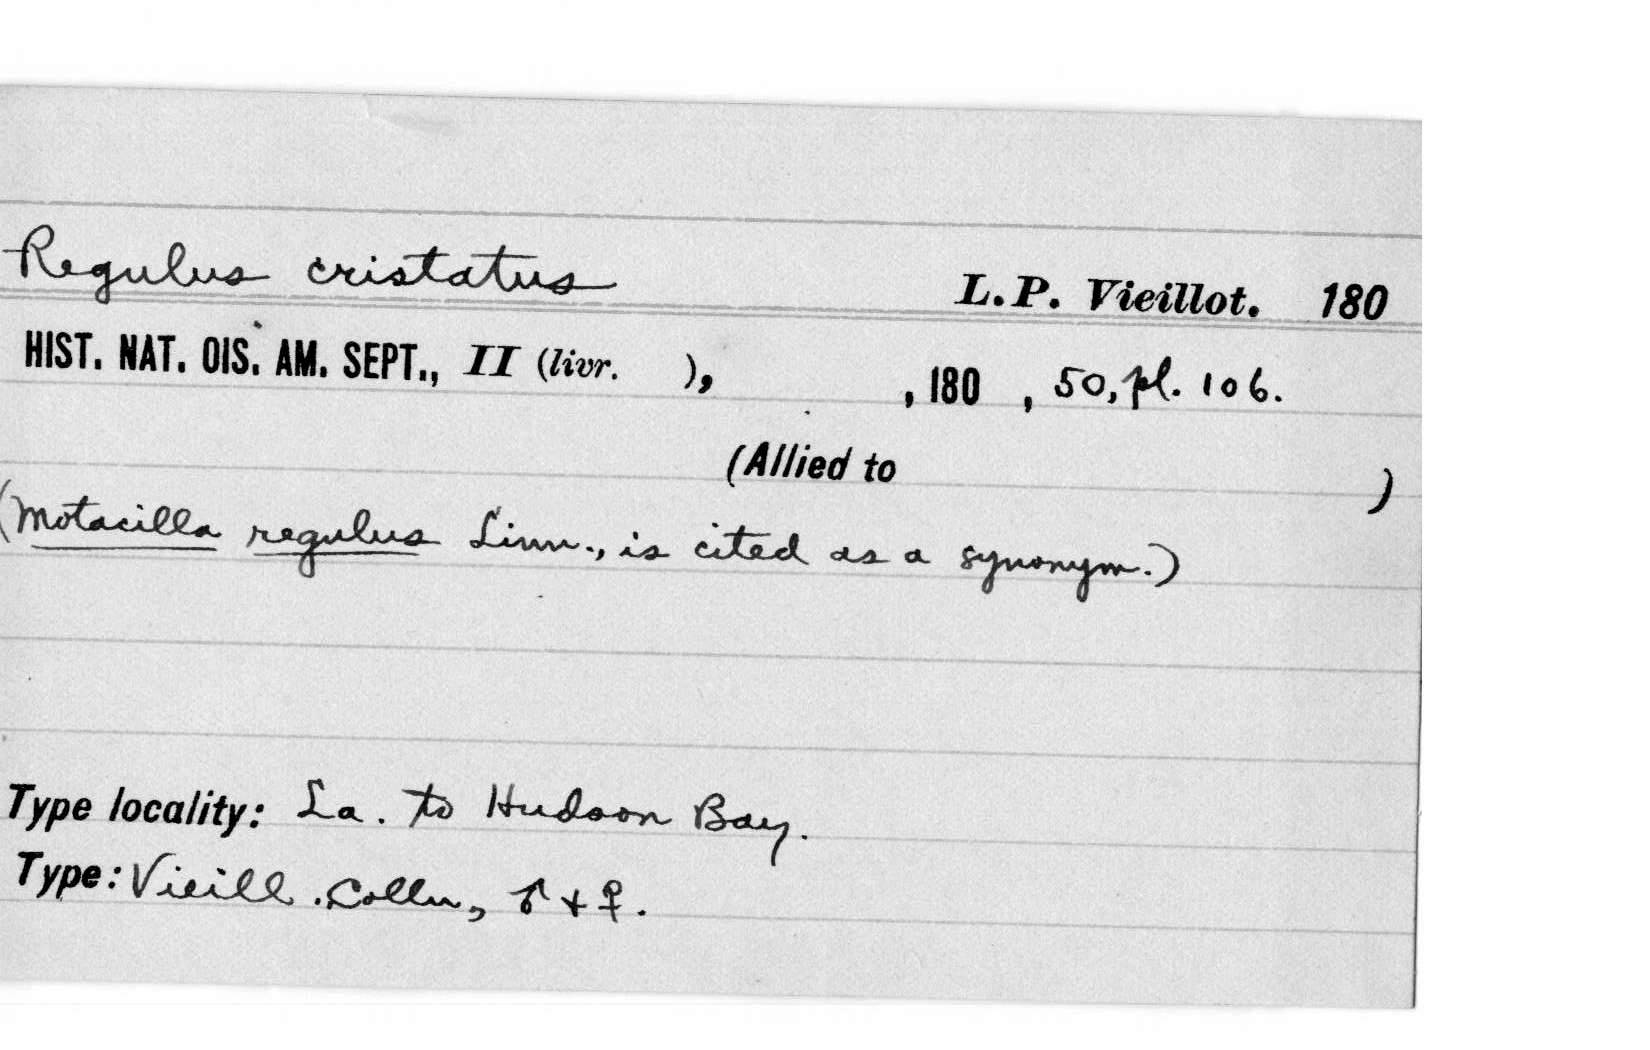 Regulus cristatus L.P. Vieillot. 180
HIST. NAT. OIS. AM. SEPT., II (livr. ), , 180 , 50, pl. 106.
(Allied to )
(Motacilla regulus Linn., is cited as a synonym.)
Type locality: La. to Hudson Bay.
Type: Vieill. Colln, ♂ + ♀.